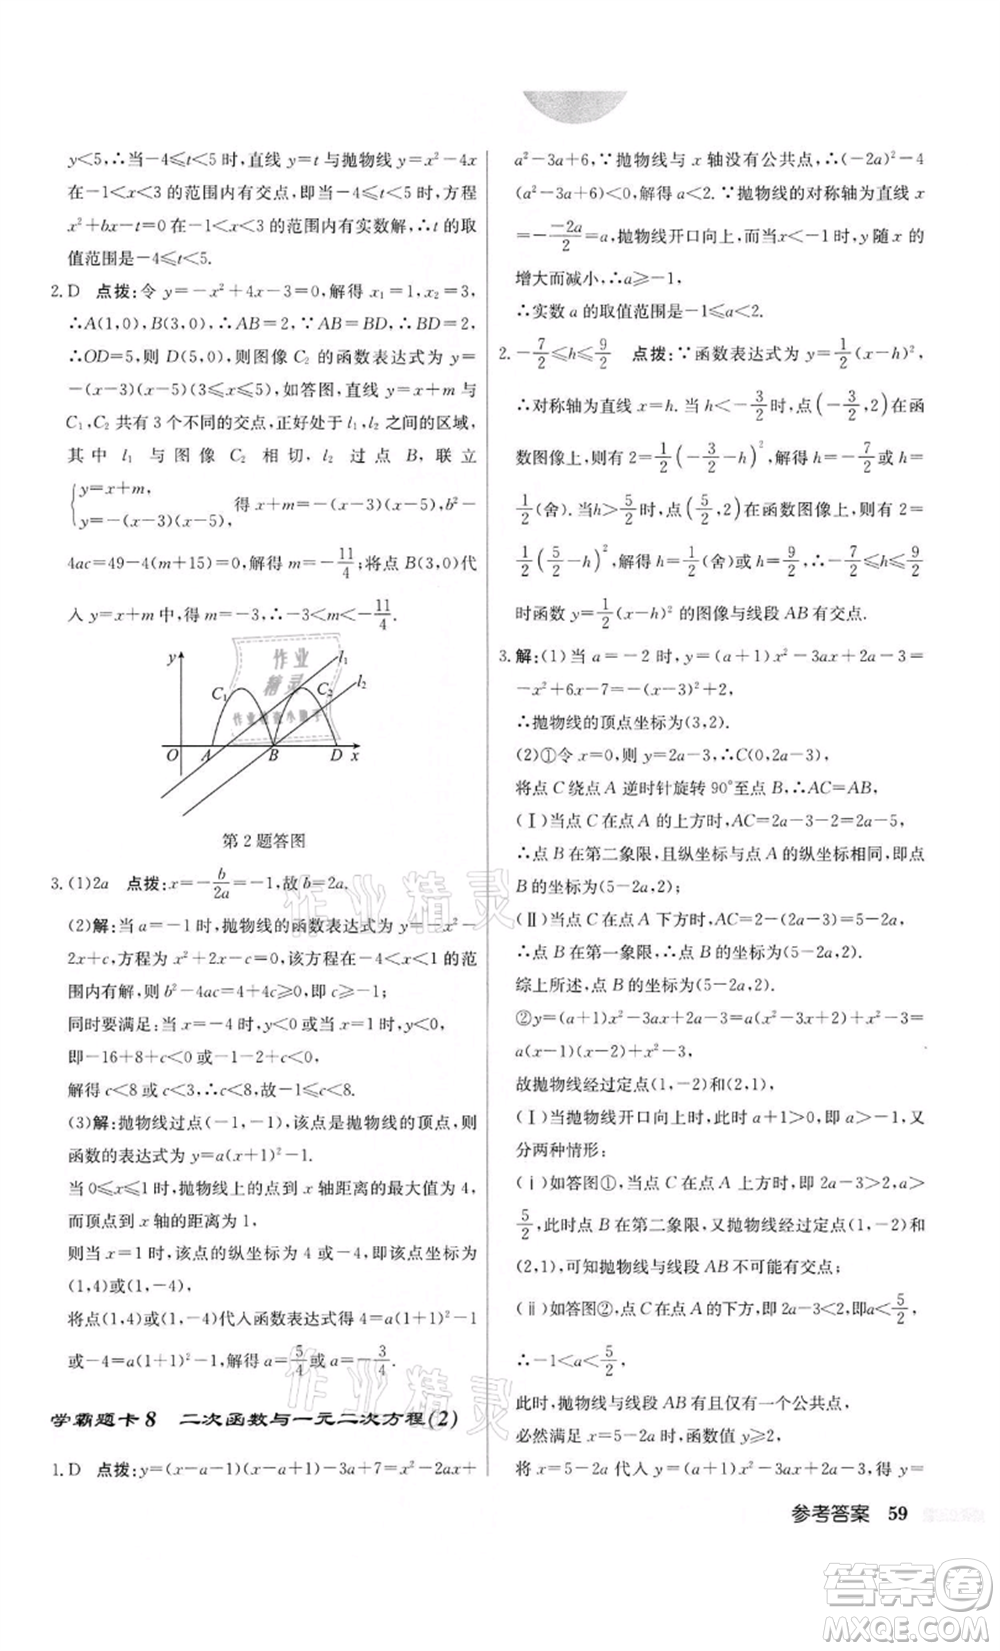 y<5,∴当-4≤t<5时,直线y=t与抛物线y=x²-4x
在-1<x<3的范围内有交点,即当-4≤t<5时,方程
x²+bx-t=0在-1<x<3的范围内有实数解,∴t的取
值范围是-4≤t<5.
2. D 点拨:令y=-x²+4x-3=0,解得x₁=1,x₂=3,
∴A(1,0),B(3,0),∴AB=2,∵AB=BD,∴BD=2,
∴OD=5,则D(5,0),则图像C₂的函数表达式为y=
-(x-3)(x-5)(3≤x≤5),如答图,直线y=x+m与
C₁,C₂共有3个不同的交点,正好处于l₁,l₂之间的区域,
其中l₁与图像C₂相切,l₂过点B,联立
{y=x+m, y=-(x-3)(x-5), 得x+m=-(x-3)(x-5),b²-
4ac=49-4(m+15)=0,解得m=-11/4;将点B(3,0)代
入y=x+m中,得m=-3,∴-3<m<-11/4.
y C₁ C₂ l₁ l₂ O A B D x
第2题答图
3. (1)2a 点拨:x=-b/2a=-1,故b=2a.
(2)解:当a=-1时,抛物线的函数表达式为y=-x²-
2x+c,方程为x²+2x-c=0,方程在-4<x<1的范
围内有解,则b²-4ac=4+4c≥0,即c≥-1;
同时要满足:当x=-4时,y<0或当x=1时,y<0,
即-16+8+c<0或-1-2+c<0,
解得c<8或c<3,∴c<8.故-1≤c<8.
(3)解:抛物线过点(-1,-1),该点是抛物线的顶点,则
函数的表达式为y=a(x+1)²-1.
当0≤x≤1时,抛物线上的点到x轴距离的最大值为4,
而顶点到x轴的距离为1,
则当x=1时,该点的纵坐标为4或-4,故该点的坐标为
(1,4)或(1,-4),
将点(1,4)或(1,-4)代入函数表达式得4=a(1+1)²-1
或-4=a(1+1)²-1,解得a=5/4或a=-3/4.
学霸题卡8 二次函数与一元二次方程(2)
1. D 点拨:y=(x-a-1)(x-a+1)-3a+7=x²-2ax+
a²-3a+6,∵抛物线与x轴没有公共点,∴(-2a)²-4
(a²-3a+6)<0,解得a<2.∵抛物线的对称轴为直线x
=--2a/2=a,抛物线开口向上,而当x<-1时,y随x的
增大而减小,∴a≥-1,
∴实数a的取值范围是-1≤a<2.
2. -7/2≤h≤9/2 点拨:∵函数表达式为y=1/2(x-h)²,
∴对称轴为直线x=h.当h<-3/2时,点(-3/2,2)在函
数图像上,则有2=1/2(-3/2-h)²,解得h=-7/2或h=
1/2(舍).当h>5/2时,点(5/2,2)在函数图像上,则有2=
1/2(5/2-h)²,解得h=1/2(舍)或h=9/2,∴-7/2≤h≤9/2
时函数y=1/2(x-h)²的图像与线段AB有交点.
3. 解:(1)当a=-2时,y=(a+1)x²-3ax+2a-3=
-x²+6x-7=-(x-3)²+2,
∴抛物线的顶点坐标为(3,2).
(2)①令x=0,则y=2a-3,∴C(0,2a-3),
将点C绕点A逆时针旋转90°至点B,∴AC=AB,
(Ⅰ)当点C在点A的上方时,AC=2a-3-2=2a-5,
∴点B在第二象限,且纵坐标与点A的纵坐标相同,即点
B的坐标为(5-2a,2).
(Ⅱ)当点C在点A下方时,AC=2-(2a-3)=5-2a,
∴点B在第一象限,∴点B的坐标为(5-2a,2).
综上所述,点B的坐标为(5-2a,2).
②y=(a+1)x²-3ax+2a-3=ax²+x²-3ax+2a-3=
a(x-1)(x-2)+x²-3,
故抛物线经过定点(1,-2)和(2,1).
(Ⅰ)当抛物线开口向上时,此时a+1>0,即a>-1,又
分两种情形:
(ⅰ)如答图①,当点C在点A上方时,即2a-3>2,a>
5/2,此时点B在第二象限,又抛物线经过定点(1,-2)和
(2,1),因此抛物线与线段AB不可能有交点;
(ⅱ)如答图②,点C在点A的下方,即2a-3<2,即a<5/2,
∴-1<a<5/2,
此时,抛物线与线段AB有交点,
必然满足当x=5-2a时,函数值y≥2,
将x=5-2a代入y=(a+1)x²-3ax+2a-3,得y=
参考答案 59
作业精灵
作业精灵
作业精灵
答案卷
MXQE.COM